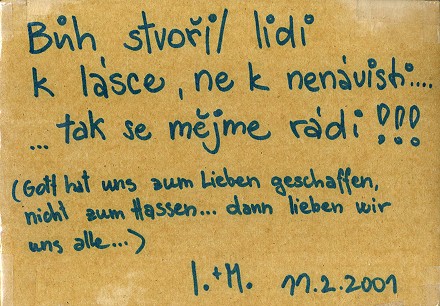 Bůh stvořil lidi
k lásce, ne k nenávisti....
... tak se mějme rádi!!!
(Gott hat uns zum Lieben geschaffen,
nicht zum Hassen... dann lieben wir
uns alle...)
I.+M. 11.2.2001